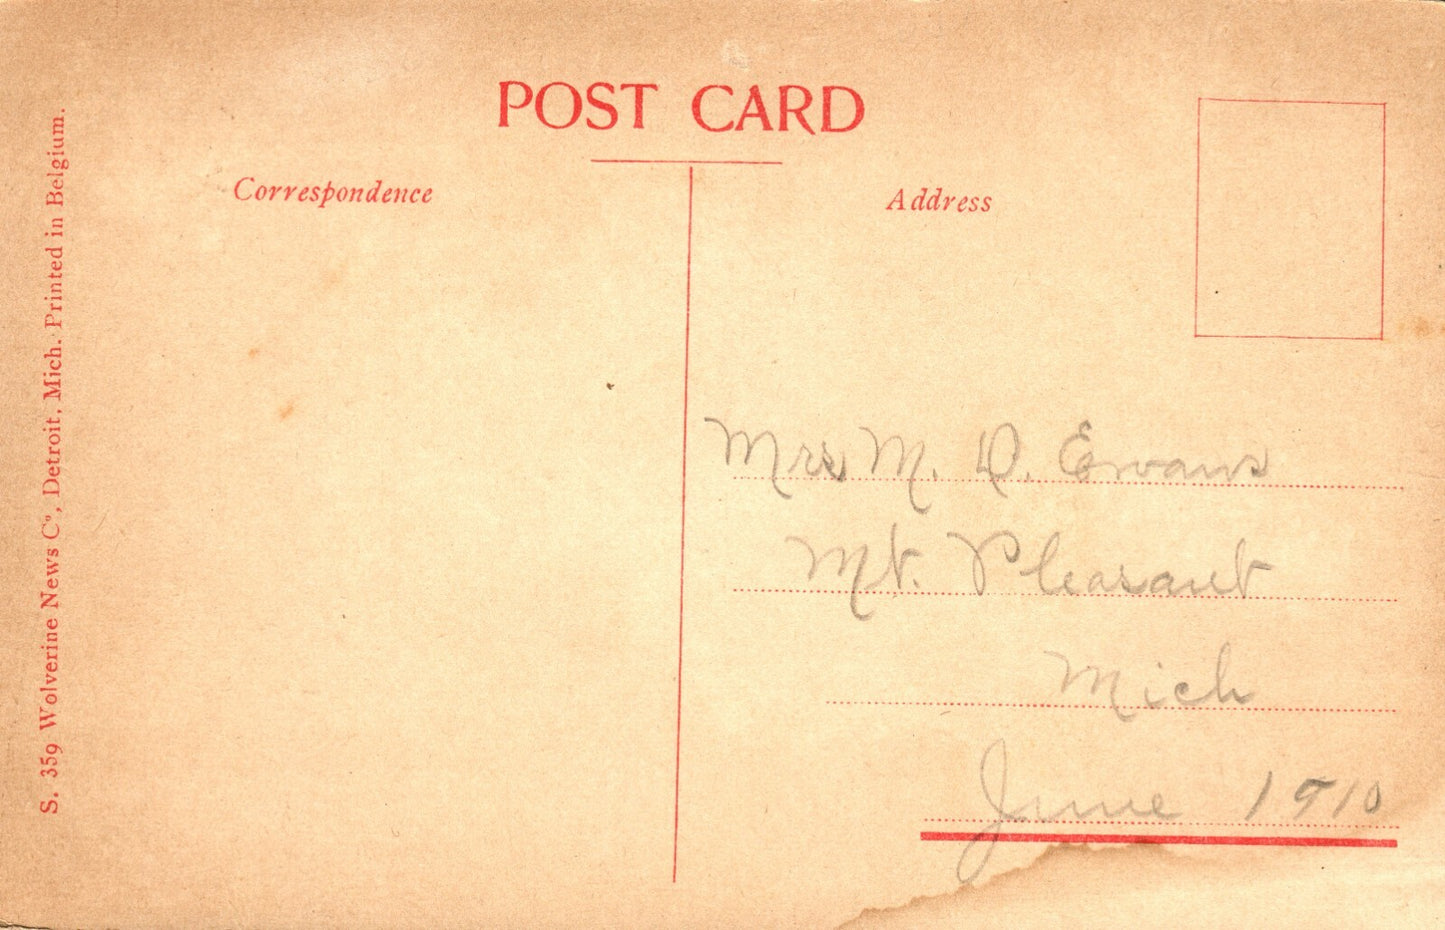 POST CARD
Correspondence
Address
S. 359 Wolverine News Cº, Detroit, Mich. Printed in Belgium.
Mrs M. D. Evans
Mt. Pleasant
Mich
June 1910